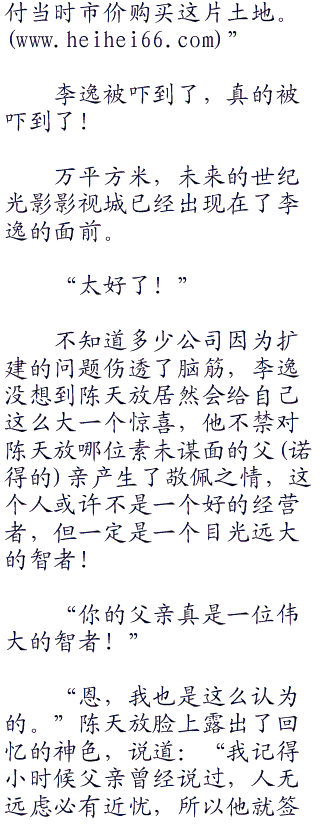 付当时市价购买这片土地。
(www.heihei66.com)”
李逸被吓到了，真的被
吓到了！
万平方米，未来的世纪
光影影视城已经出现在了李
逸的面前。
“太好了！”
不知道多少公司因为扩
建的问题伤透了脑筋，李逸
没想到陈天放居然会给自己
这么大一个惊喜，他不禁对
陈天放哪位素未谋面的父(诺
得的)亲产生了敬佩之情，这
个人或许不是一个好的经营
者，但一定是一个目光远大
的智者！
“你的父亲真是一位伟
大的智者！”
“恩，我也是这么认为
的。”陈天放脸上露出了回
忆的神色，说道：“我记得
小时候父亲曾经说过，人无
远虑必有近忧，所以他就签